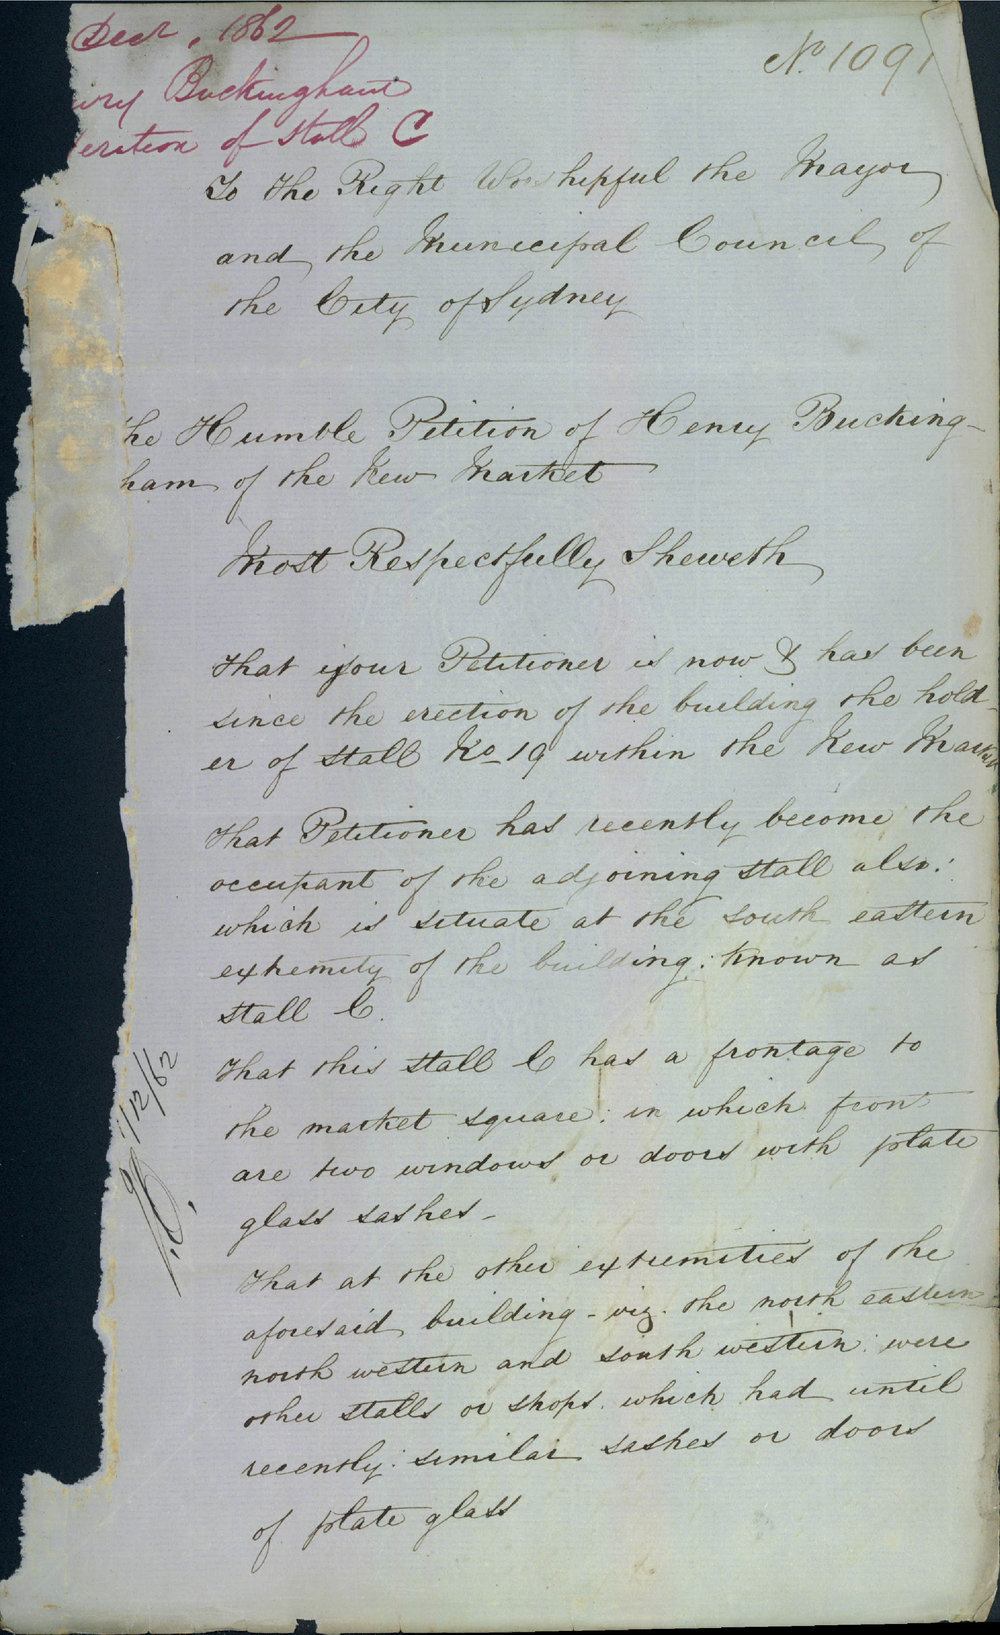 Decr, 1862
No. 1091
nry Buckingham
eration of Stall C
To the Right Worshipful the Mayor
and the Municipal Council of
the City of Sydney
he Humble Petition of Henry Bucking-
ham of the New Market
Most Respectfully Sheweth
That your Petitioner is now & has been
since the erection of the building the hold-
er of Stall No 19 within the New Market
That Petitioner has recently become the
occupant of the adjoining Stall also:
which is situate at the south eastern
extremity of the building: known as
Stall C.
That this Stall C has a frontage to
the market square: in which front
are two windows or doors with plate
glass sashes-
That at the other extremities of the
aforesaid building - viz. the north eastern
north western and south western: were
other stalls or shops. which had until
recently: similar sashes or doors
of plate glass
/12/62